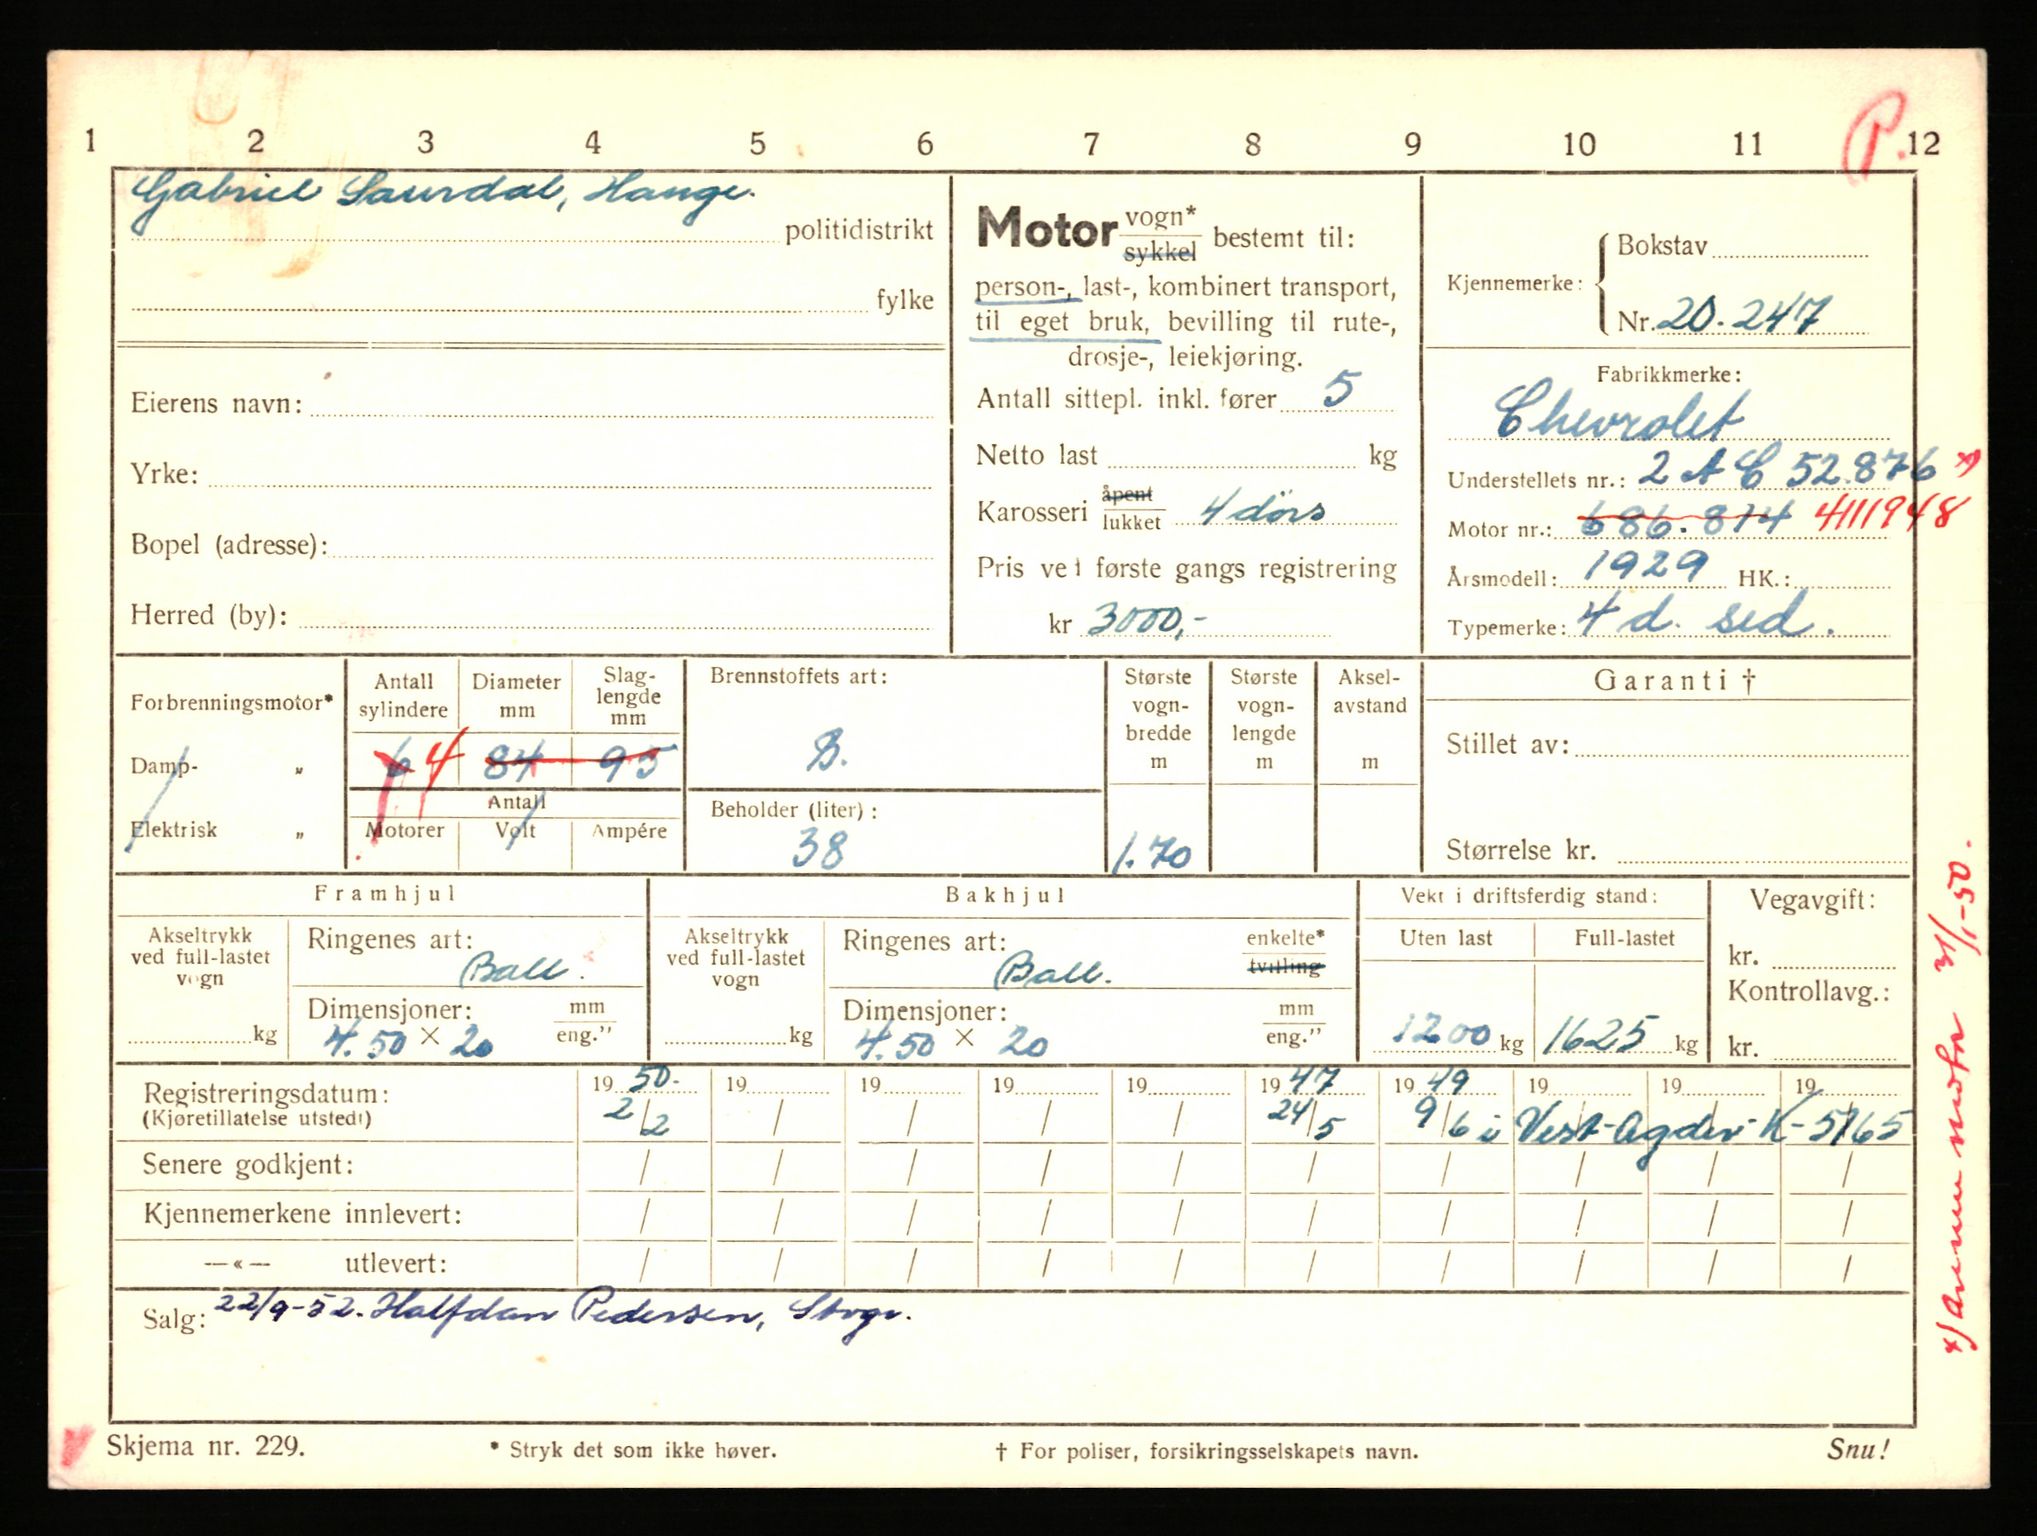 P.
1 2 3 4 5 6 7 8 9 10 11 12
Gabriel Saurdal, Hauge.
politidistrikt
fylke
Eierens navn:
Yrke:
Bopel (adresse):
Herred (by):
Motor vogn* sykkel bestemt til:
person-, last-, kombinert transport,
til eget bruk, bevilling til rute-,
drosje-, leiekjøring.
Antall sittepl. inkl. fører 5
Netto last kg
Karosseri åpent lukket 4 dörs
Pris ved første gangs registrering
kr 3000,-
Kjennemerke: Bokstav
Nr. 20.247
Fabrikkmerke:
Chevrolet
Understellets nr.: 2 A C 52.876 x)
Motor nr.: 686.814 4111948
Årsmodell: 1929 HK.:
Typemerke: 4 d. sed.
Forbrenningsmotor*
Damp- „
Elektrisk „
Antall sylindere
6 4
Diameter mm
84
Slag-lengde mm
95
Antall
Motorer Volt Ampére
Brennstoffets art:
B.
Beholder (liter):
38
Største vogn-bredde m
1.70
Største vogn-lengde m
Aksel-avstand m
Garanti †
Stillet av:
Størrelse kr.
Framhjul
Akseltrykk ved full-lastet vogn
kg
Ringenes art:
Ball.
Dimensjoner: mm eng.”
4.50 × 20
Bakhjul
Akseltrykk ved full-lastet vogn
kg
Ringenes art: enkelte* tvilling
Ball.
Dimensjoner: mm eng.”
4.50 × 20
Vekt i driftsferdig stand:
Uten last Full-lastet
1200 kg 1625 kg
Vegavgift:
kr.
Kontrollavg.:
kr.
Registreringsdatum: 19 50. 19 19 19 19 19 47 19 49 19 19 19
(Kjøretillatelse utstedt) 2/2 / / / / 24/5 9/6 i Vest-Agder K-5765
Senere godkjent: / / / / / / / / / /
Kjennemerkene innlevert: / / / / / / / / / /
—«— utlevert: / / / / / / / / / /
Salg: 22/9-52. Halfdan Pedersen, Stvgr.
x) Annen motor 31/1-50.
Skjema nr. 229.
* Stryk det som ikke høver.
† For poliser, forsikringsselskapets navn.
Snu!